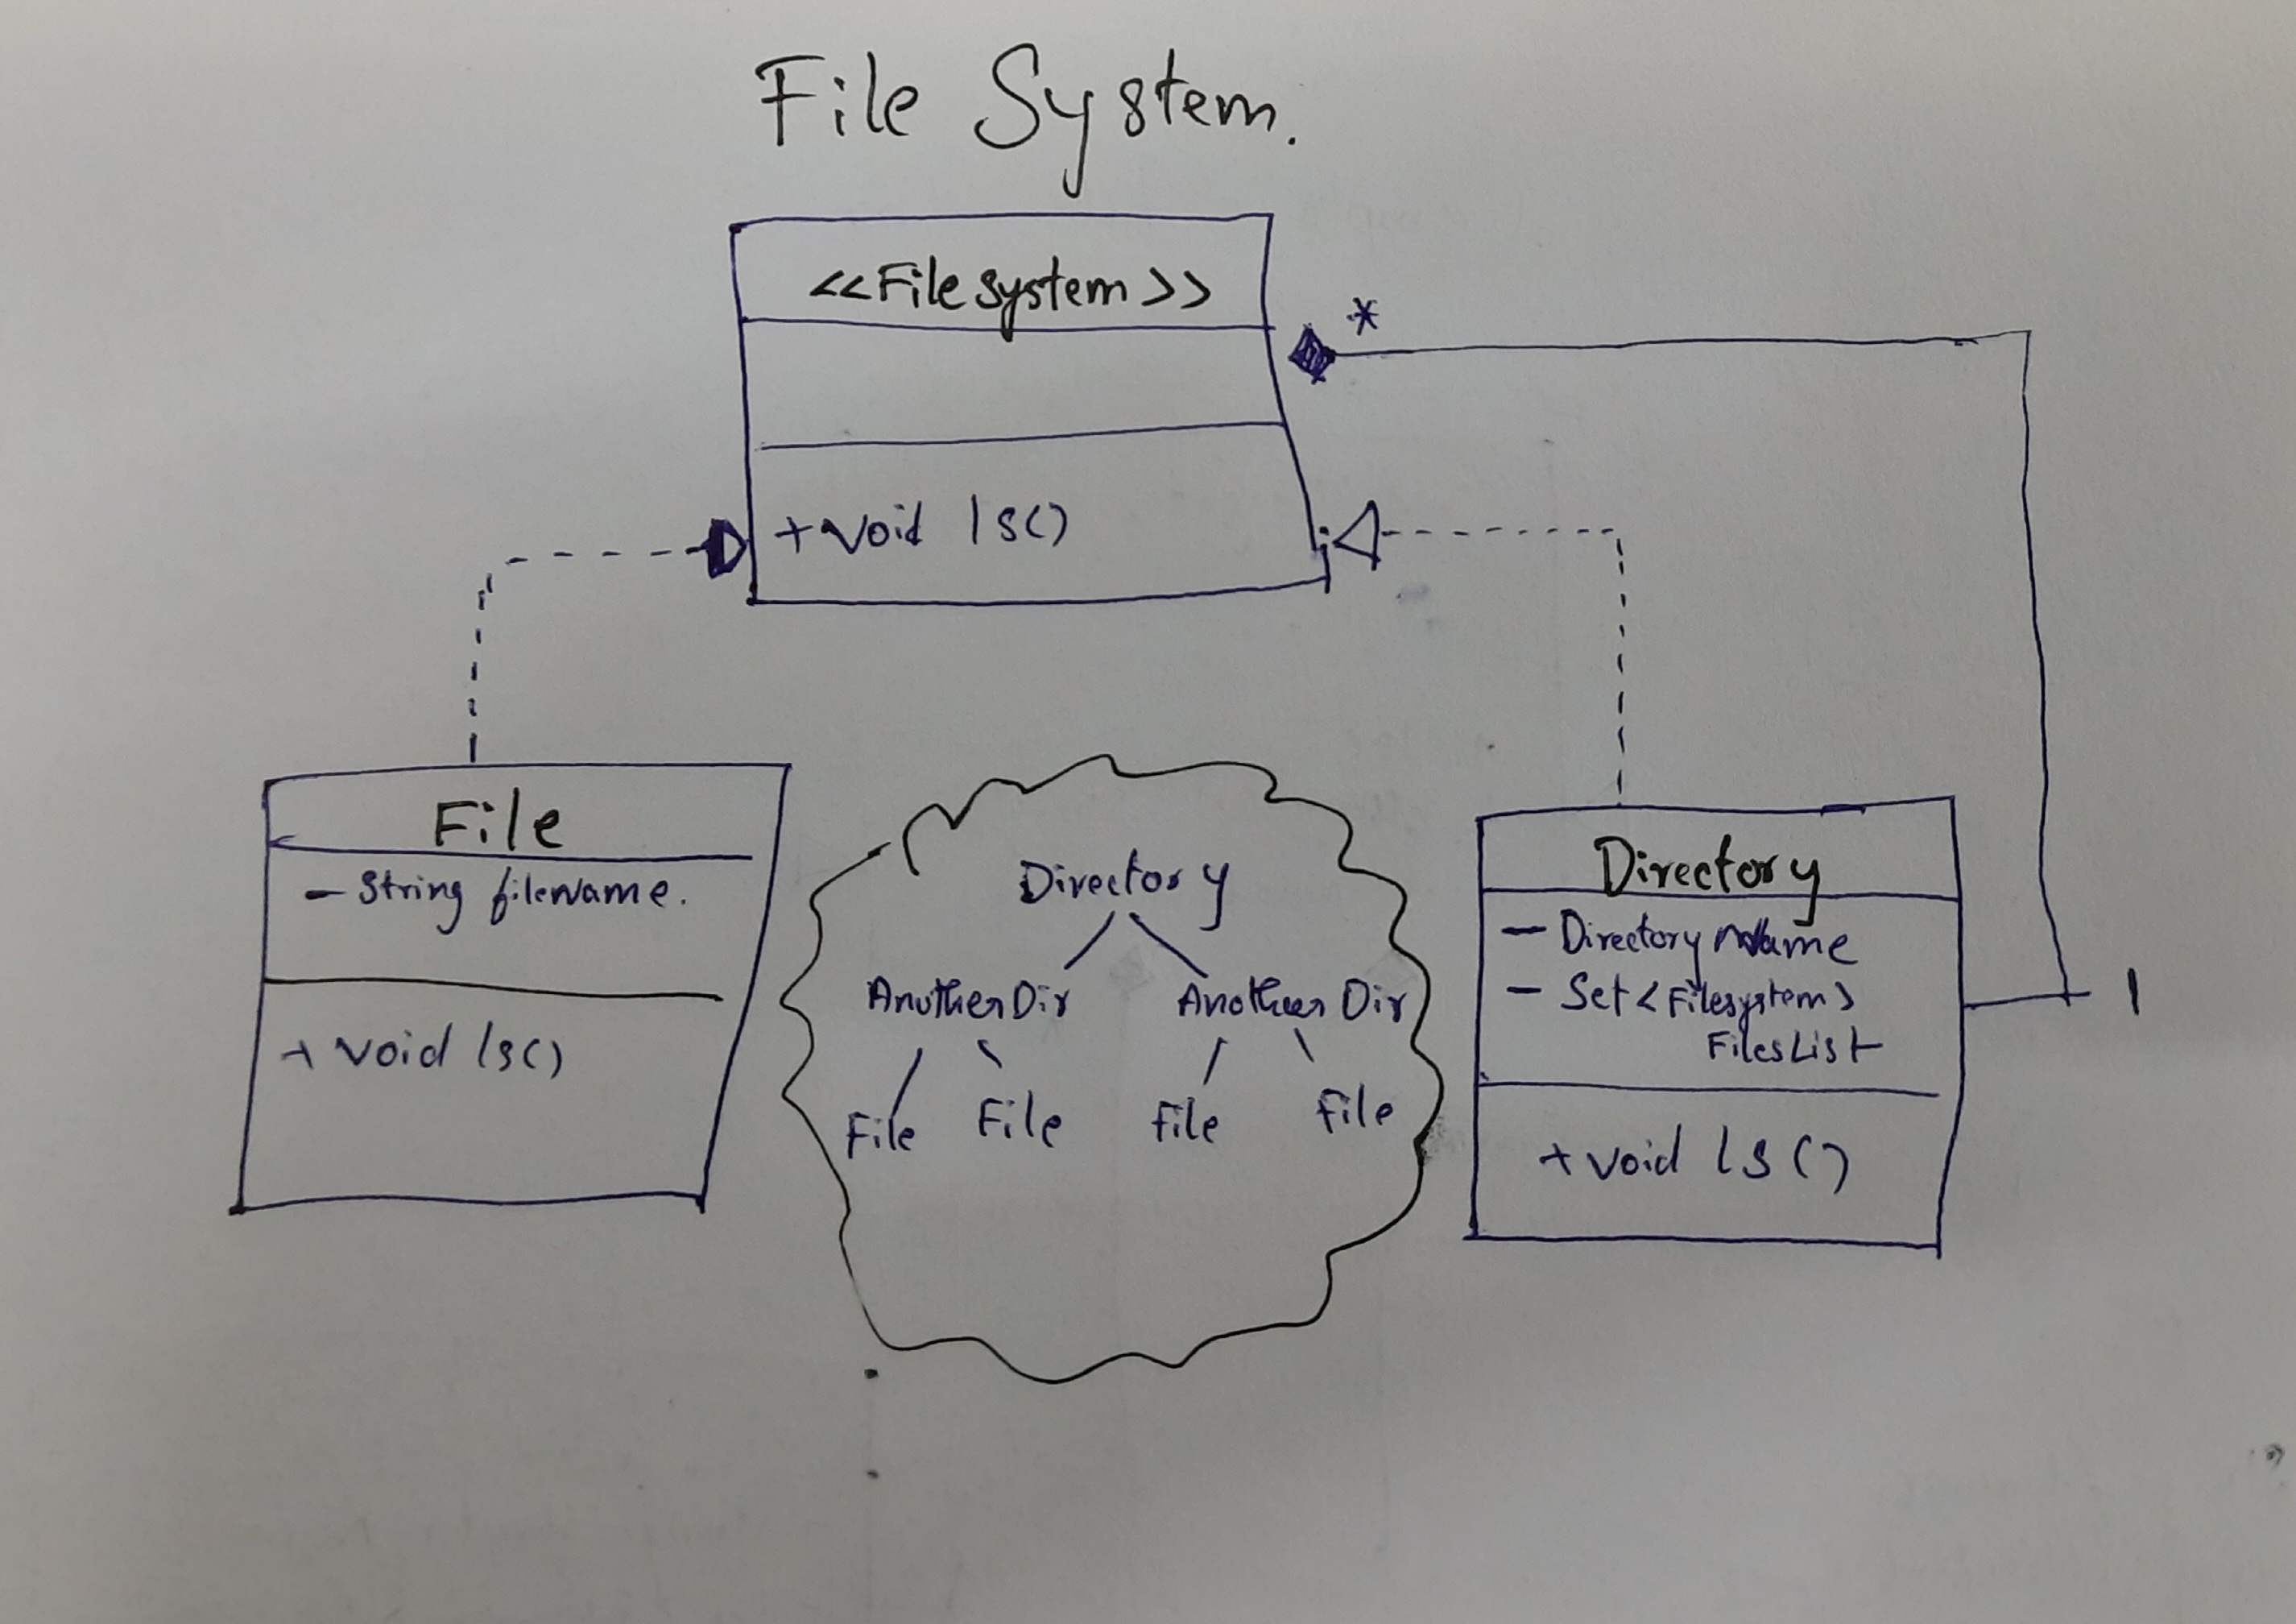 File System.
<<Filesystem>>
*
+ void ls()
File
- String filename.
+ void ls()
Directory
Another Dir Another Dir
File File File File
Directory
- Directory Name
- Set<Filesystem>
FilesList
+ void ls()
1